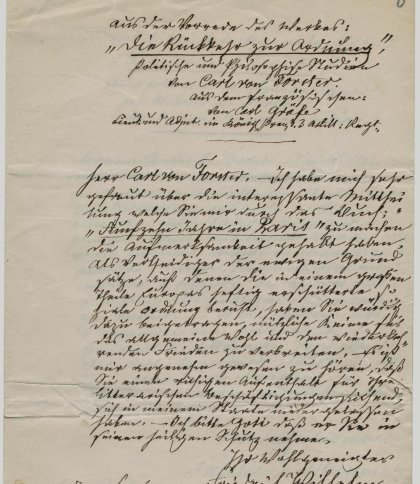 Aus der Vorrede des Werkes:
„Die Rückkehr zur Ordnung"
Politische und Philosophische Studien
von Carl von Forster.
Aus dem Französischen:
von Carl Gräfe
Lieut. und Adjut. im Königl. Preuß. 3 Artill: Regt.
Herr Carl von Forster. – Ich habe mich sehr
gefreut über die interessante Mitthei
lung welche Sie mir durch das Buch:
„Fünfzehn Jahre in Paris" zu machen
die Aufmerksamkeit gehabt haben.
Als Vertheidiger der ewigen Grund
sätze, auf denen die in einem großen
Theile Europas heftig erschütterte so
ziale Ordnung beruht, haben Sie würdig
dazu beigetragen, nützliche Keime für
das allgemeine Wohl und den wiederkeh
renden Frieden zu verbreiten. – Es ist
mir angenehm gewesen zu hören, daß
Sie einen ruhigen Aufenthalt für Ihre
litterarischen Beschäftigungen suchend
sich in meinem Staate niedergelassen
haben. – Ich bitte Gott daß er Sie in
seinen heiligen Schutz nehme.
Ihr Wohlgeneigter
Friedrich Wilhelm